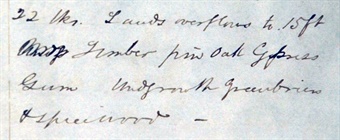 22 lks. Lands overflows to 15 ft
Timber pin Oak Cypress
Gum Undgrowth Greenbriers
& spicewood —